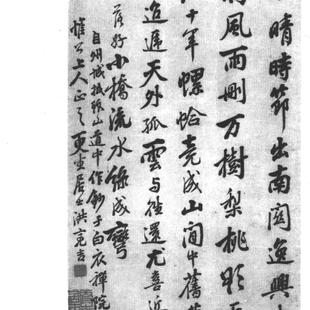 晴時節出南關逸興
風雨刪万樹梨桃
十年螺蛤竟成山間中舊
天外孤雲与往還尤喜近
好小橋流水綠成彎
自州城抵張山道中作鈔于白衣禪院
惟公上人正之更生居士洪亮吉